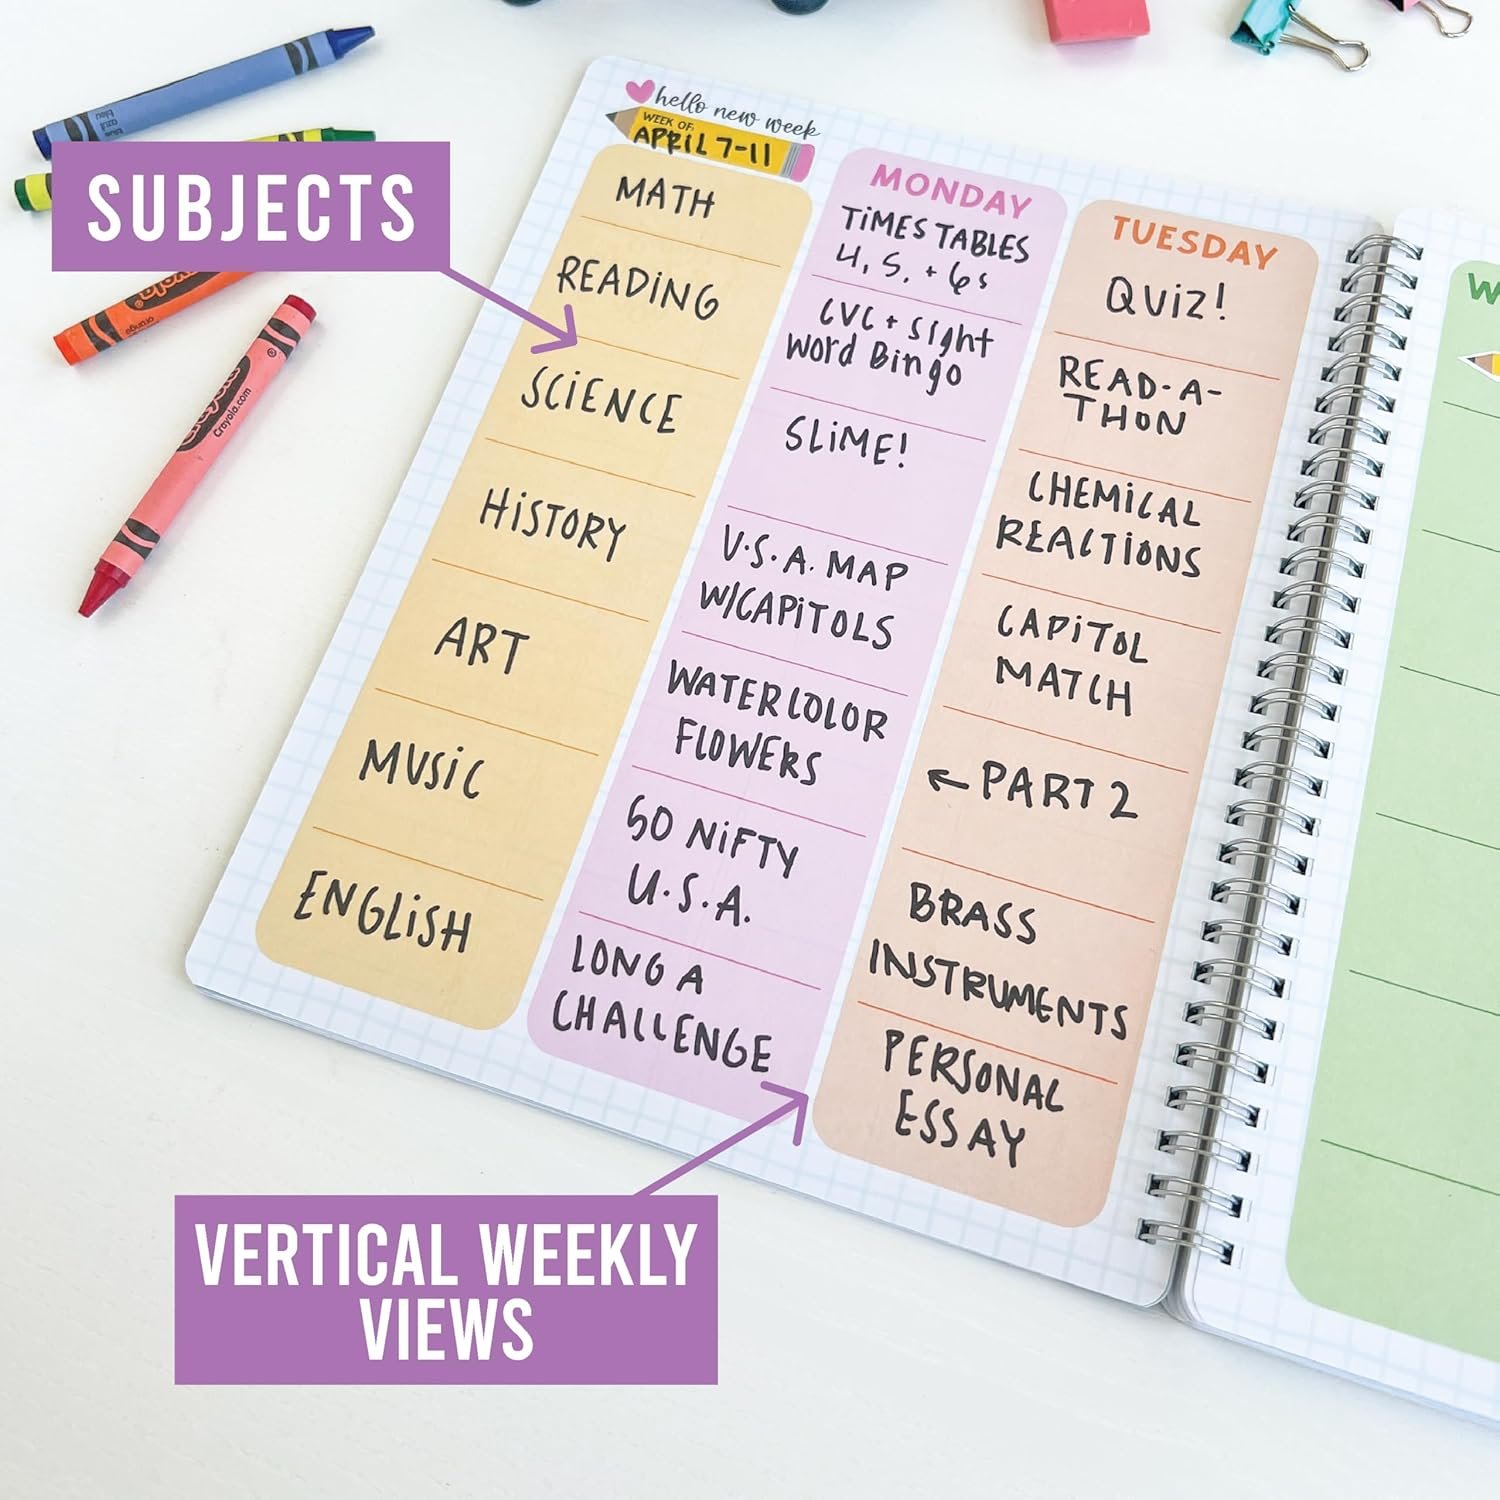 hello new week
WEEK OF:
APRIL 7-11
SUBJECTS
MATH
READING
SCIENCE
HISTORY
ART
MUSIC
ENGLISH
MONDAY
TIMES TABLES
4, 5, + 6s
CVC + sight
word Bingo
SLIME!
U.S.A. MAP
W/CAPITOLS
WATERCOLOR
FLOWERS
50 NIFTY
U.S.A.
LONG A
CHALLENGE
TUESDAY
QUIZ!
READ-A-
THON
CHEMICAL
REACTIONS
CAPITOL
MATCH
← PART 2
BRASS
INSTRUMENTS
PERSONAL
ESSAY
W
VERTICAL WEEKLY
VIEWS
blue
azul
bleu
Crayola
Crayola
Crayola.com